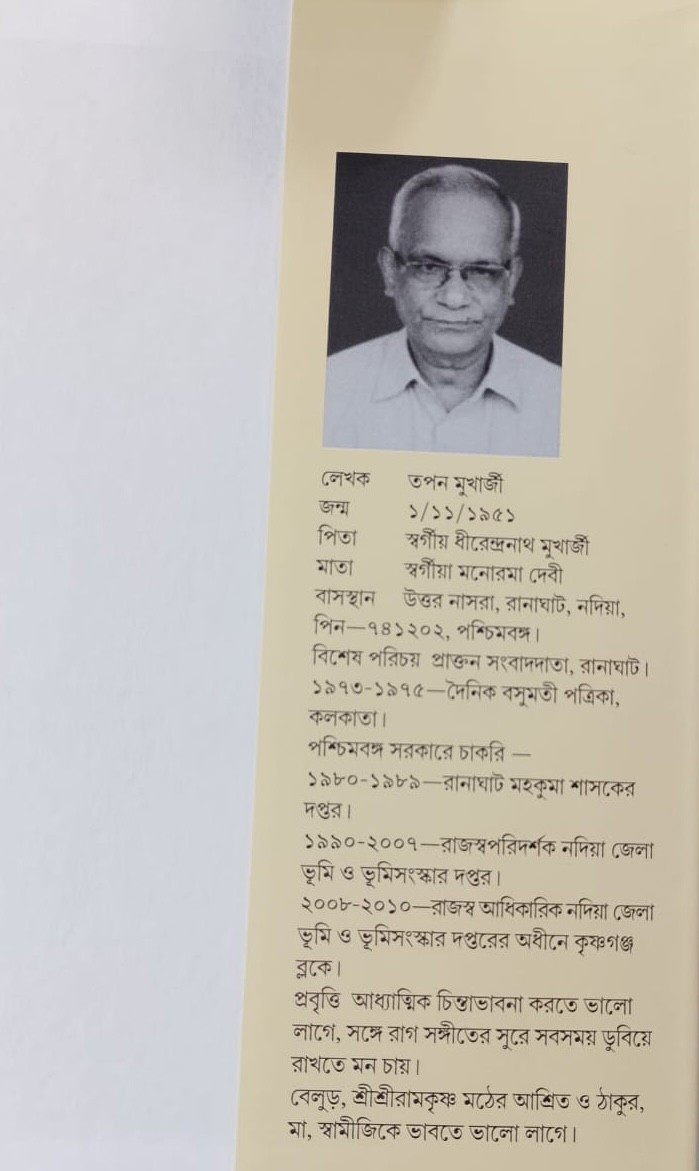 লেখক তপন মুখার্জী
জন্ম ১/১১/১৯৫১
পিতা স্বর্গীয় ধীরেন্দ্রনাথ মুখার্জী
মাতা স্বর্গীয়া মনোরমা দেবী
বাসস্থান উত্তর নাসরা, রানাঘাট, নদিয়া,
পিন—৭৪১২০২, পশ্চিমবঙ্গ।
বিশেষ পরিচয় প্রাক্তন সংবাদদাতা, রানাঘাট।
১৯৭৩-১৯৭৫—দৈনিক বসুমতী পত্রিকা,
কলকাতা।
পশ্চিমবঙ্গ সরকারে চাকরি —
১৯৮০-১৯৮৯—রানাঘাট মহকুমা শাসকের
দপ্তর।
১৯৯০-২০০৭—রাজস্বপরিদর্শক নদিয়া জেলা
ভূমি ও ভূমিসংস্কার দপ্তর।
২০০৮-২০১০—রাজস্ব আধিকারিক নদিয়া জেলা
ভূমি ও ভূমিসংস্কার দপ্তরের অধীনে কৃষ্ণগঞ্জ
ব্লকে।
প্রবৃত্তি আধ্যাত্মিক চিন্তাভাবনা করতে ভালো
লাগে, সঙ্গে রাগ সঙ্গীতের সুরে সবসময় ডুবিয়ে
রাখতে মন চায়।
বেলুড়, শ্রীশ্রীরামকৃষ্ণ মঠের আশ্রিত ও ঠাকুর,
মা, স্বামীজিকে ভাবতে ভালো লাগে।